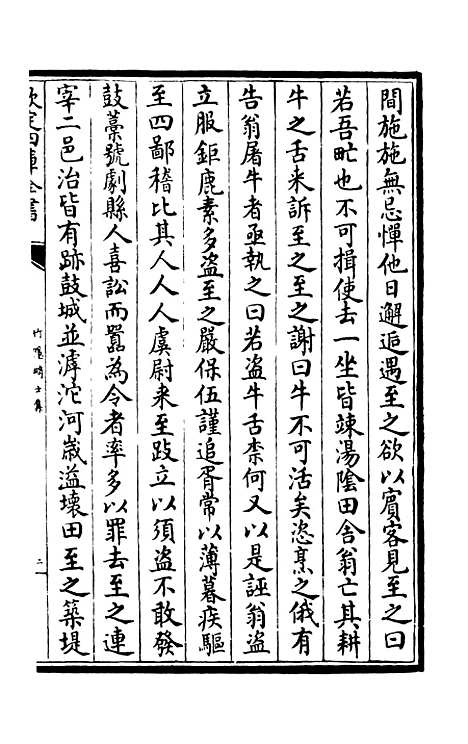 間施施無忌憚他日邂逅遇至之欲以賓客見至之曰
若吾甿也不可揖使去一坐皆竦湯陰田舍翁亡其耕
牛之舌来訴至之至之謝曰牛不可活矣恣烹之俄有
告翁屠牛者亟執之曰若盗牛舌柰何又以是誣翁盗
立服鉅鹿素多盗至之嚴保伍謹追胥常以薄暮疾驅
至四鄙稽比其人人人虞尉来至跂立以須盗不敢發
鼓藁號劇縣人喜訟而嚚為令者率多以罪去至之連
宰二邑治皆有跡鼓城並滹沱河嵗溢壊田至之築堤
欽定四庫全書
竹隱畸士集
二